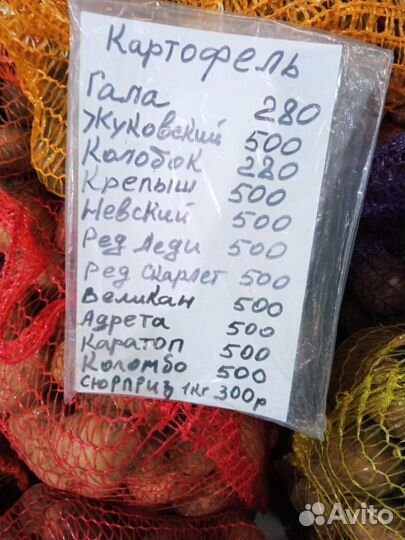 Картофель
Гала 280
Жуковский 500
Колобок 280
Крепыш 500
Невский 500
Ред Леди 500
Ред Скарлет 500
Великан 500
Адрета 500
Каратоп 500
Коломбо 500
Сюрприз 1кг 300р
Avito